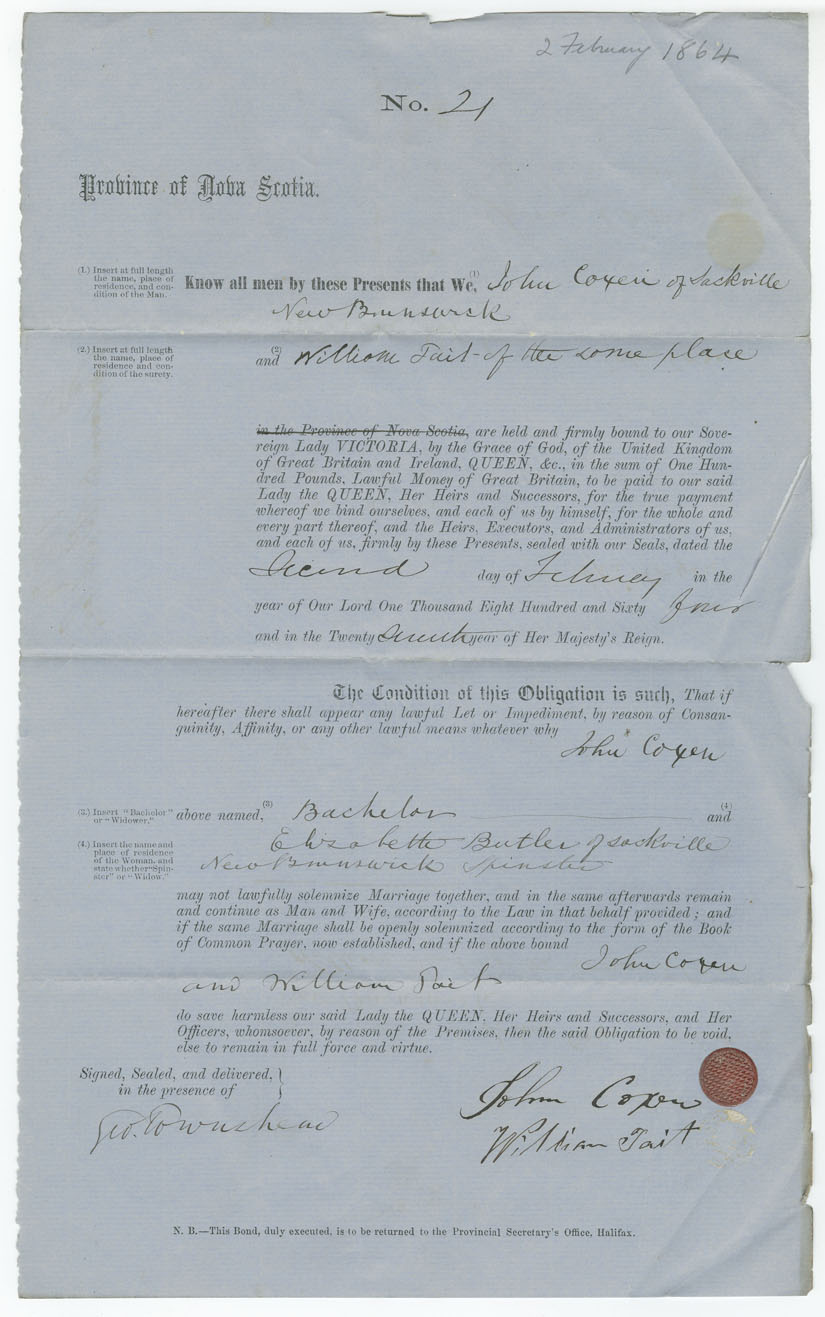 2 February 1864
No. 21
Province of Nova Scotia.
(1.) Insert at full length
the name, place of
residence, and con-
dition of the Man.
Know all men by these Presents that We,(1) John Coxen of Sackville
New Brunswick
(2.) Insert at full length
the name, place of
residence and con-
dition of the surety.
and (2) William Tait of the same place
in the Province of Nova Scotia, are held and firmly bound to our Sove-
reign Lady VICTORIA, by the Grace of God, of the United Kingdom
of Great Britain and Ireland, QUEEN, &c., in the sum of One Hun-
dred Pounds, Lawful Money of Great Britain, to be paid to our said
Lady the QUEEN, Her Heirs and Successors, for the true payment
whereof we bind ourselves, and each of us by himself, for the whole and
every part thereof, and the Heirs, Executors, and Administrators of us,
and each of us, firmly by these Presents, sealed with our Seals, dated the
Second day of February in the
year of Our Lord One Thousand Eight Hundred and Sixty four
and in the Twenty Seventh year of Her Majesty's Reign.
The Condition of this Obligation is such, That if
hereafter there shall appear any lawful Let or Impediment, by reason of Consan-
guinity, Affinity, or any other lawful means whatever why
John Coxen
(3.) Insert "Bachelor"
or "Widower."
above named,(3) Bachelor (4) and
(4.) Insert the name and
place of residence
of the Woman, and
state whether "Spin-
ster" or "Widow."
Elizabeth Butler of Sackville
New Brunswick Spinster
may not lawfully solemnize Marriage together, and in the same afterwards remain
and continue as Man and Wife, according to the Law in that behalf provided; and
if the same Marriage shall be openly solemnized according to the form of the Book
of Common Prayer, now established, and if the above bound
John Coxen
and William Tait
do save harmless our said Lady the QUEEN, Her Heirs and Successors, and Her
Officers, whomsoever, by reason of the Premises, then the said Obligation to be void,
else to remain in full force and virtue.
Signed, Sealed, and delivered,
in the presence of
Geo. Townshend
John Coxen
William Tait
N. B.—This Bond, duly executed, is to be returned to the Provincial Secretary's Office, Halifax.